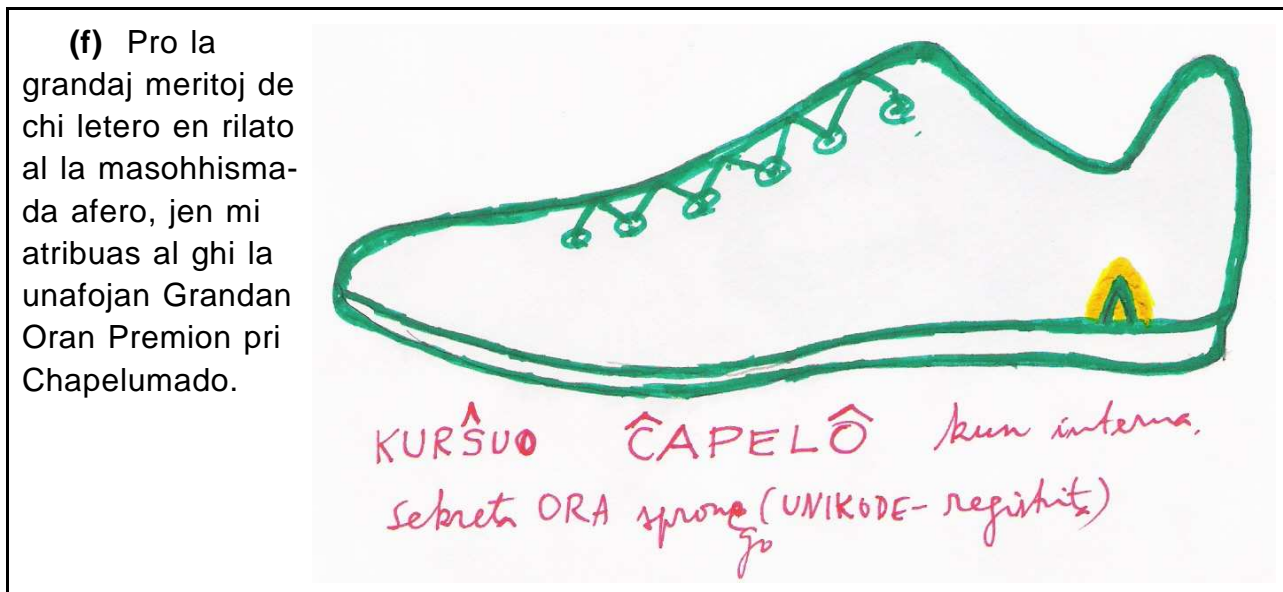 (f) Pro la
grandaj meritoj de
chi letero en rilato
al la masohhisma-
da afero, jen mi
atribuas al ghi la
unafojan Grandan
Oran Premion pri
Chapelumado.
KURŜUO ĈAPELÔ kun interna,
sekreta ORA sprono (UNIKODE-registrita)